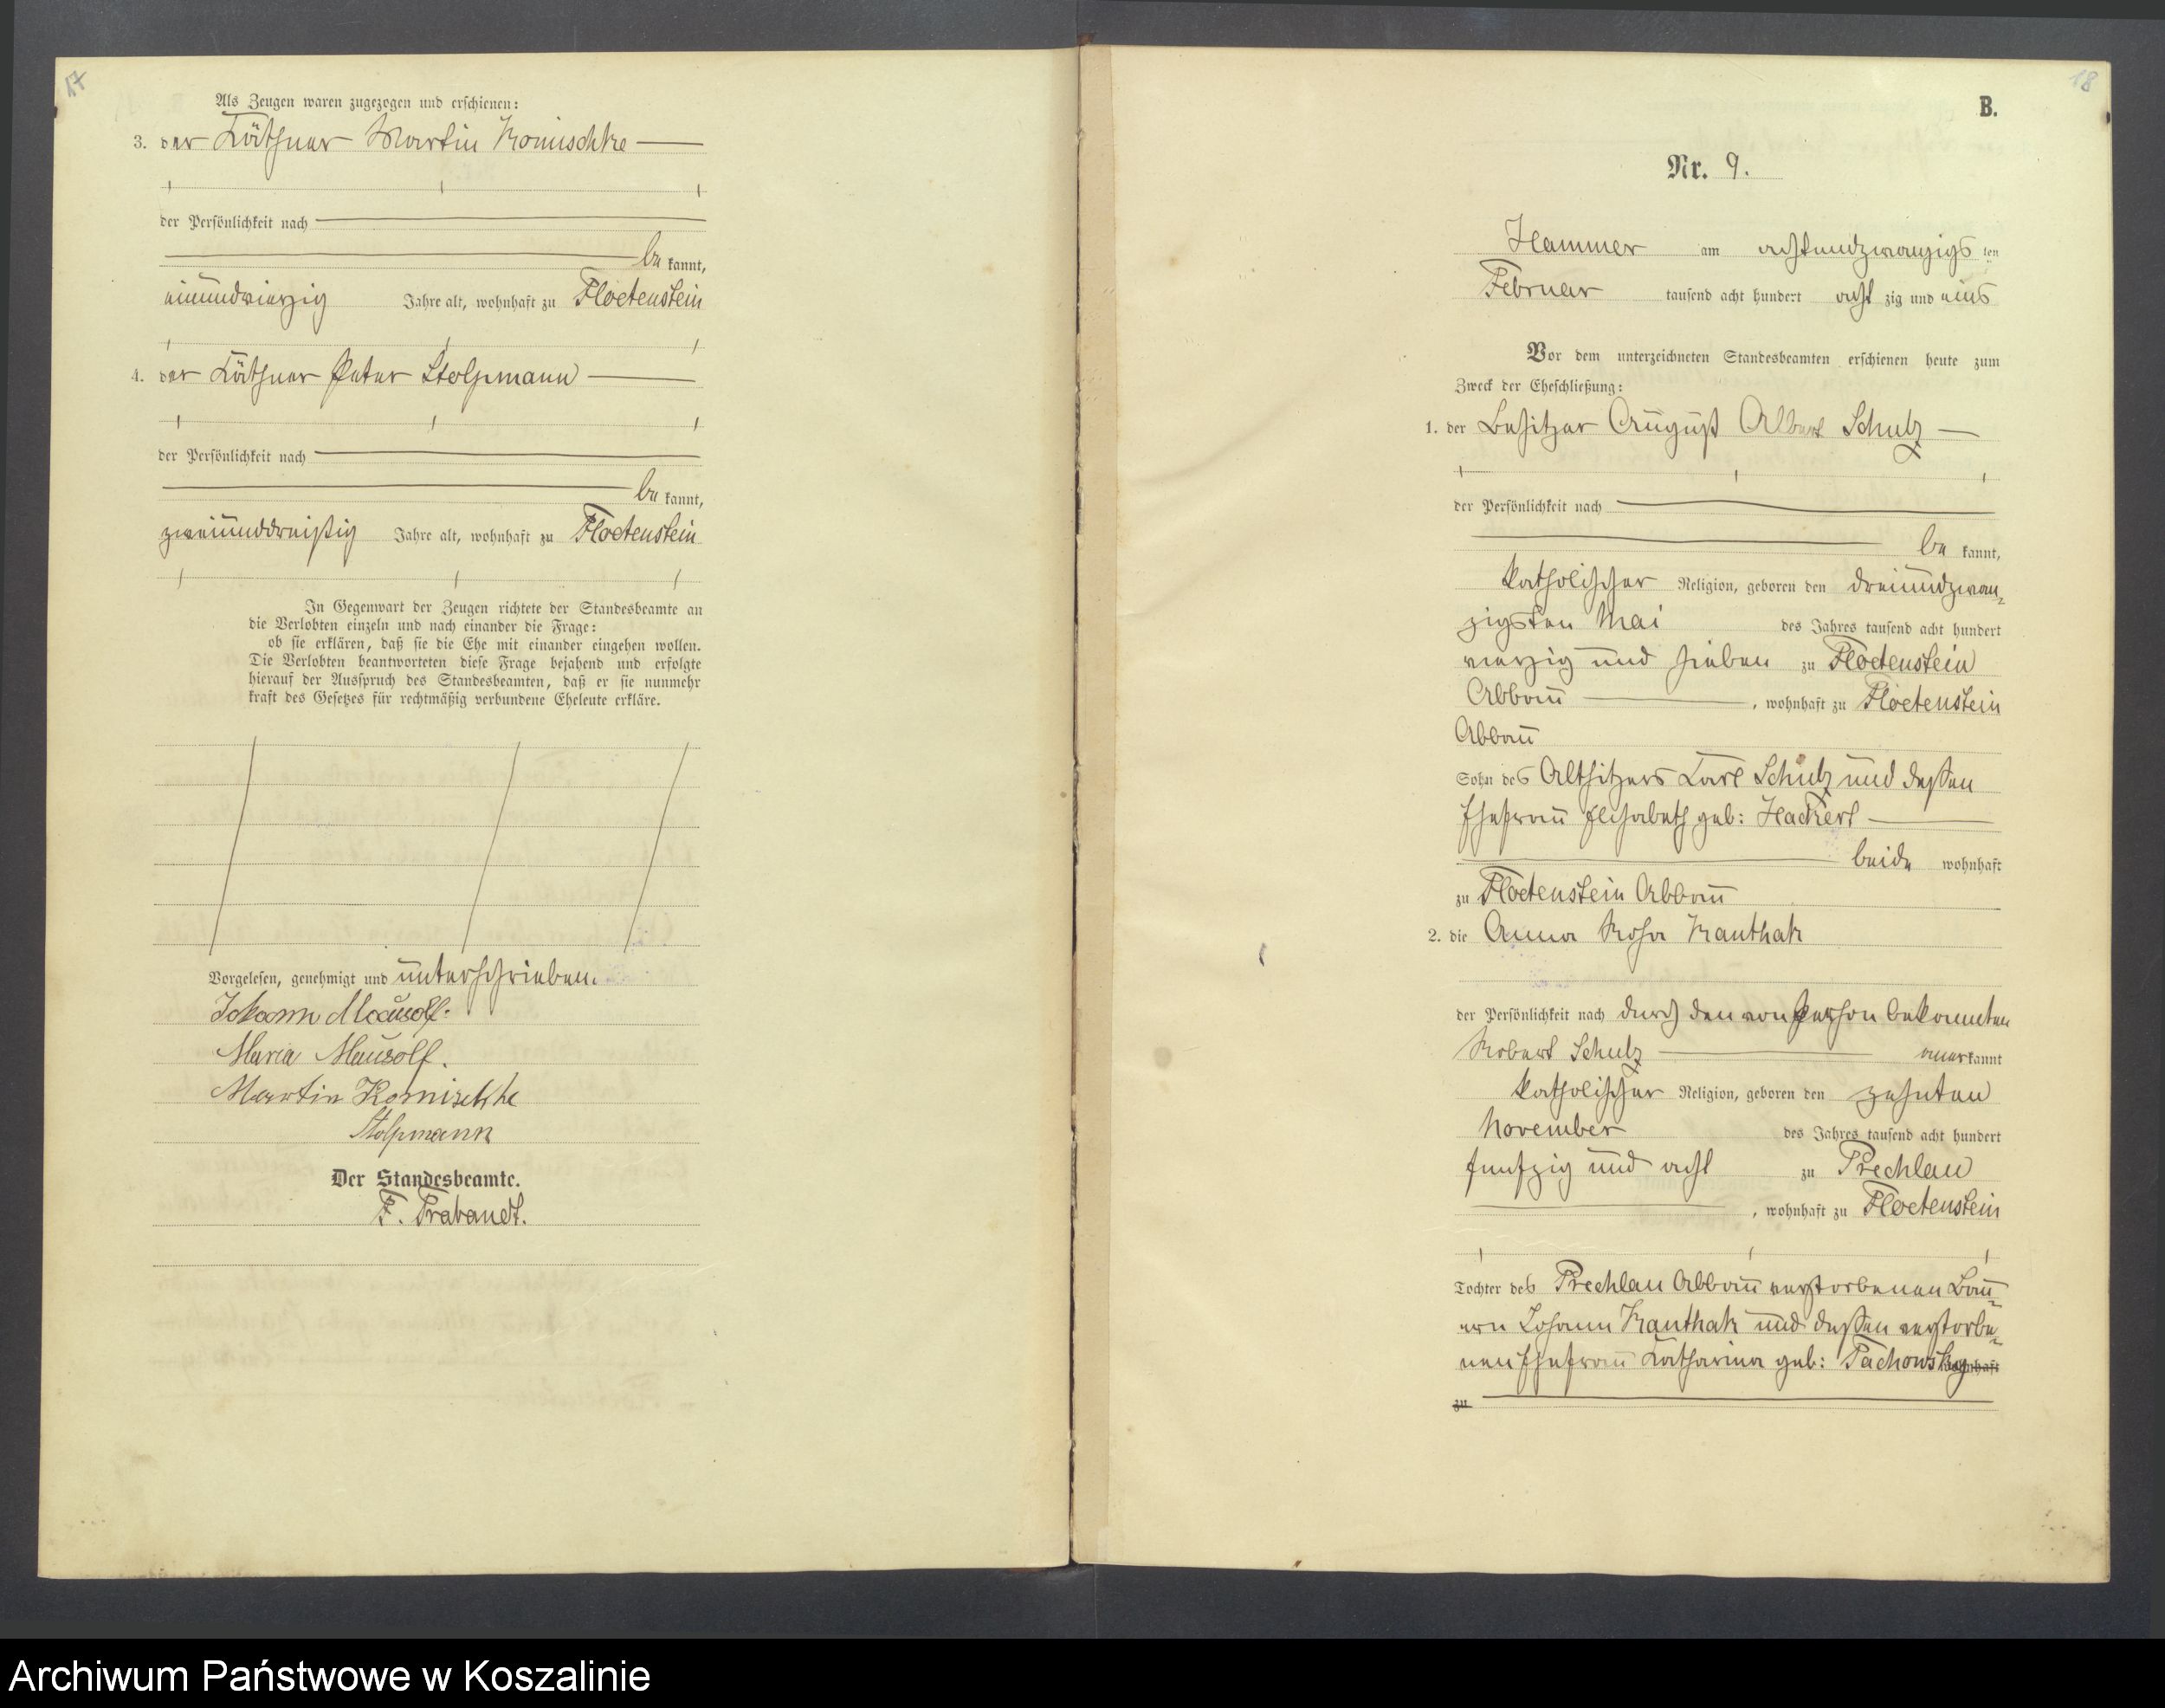 17
Als Zeugen waren zugezogen und erschienen:
3. der Käthner Martin Komischke
der Persönlichkeit nach
be kannt,
einundvierzig Jahre alt, wohnhaft zu Floetenstein
4. der Käthner Peter Stolpmann
der Persönlichkeit nach
be kannt,
zweiunddreißig Jahre alt, wohnhaft zu Floetenstein
In Gegenwart der Zeugen richtete der Standesbeamte an
die Verlobten einzeln und nach einander die Frage:
ob sie erklären, daß sie die Ehe mit einander eingehen wollen.
Die Verlobten beantworteten diese Frage bejahend und erfolgte
hierauf der Ausspruch des Standesbeamten, daß er sie nunmehr
kraft des Gesetzes für rechtmäßig verbundene Eheleute erkläre.
Vorgelesen, genehmigt und unterschrieben.
Johann Mausolf.
Maria Mausolf.
Martin Komischke
Stolpmann
Der Standesbeamte.
F. Trabandt.
18
B.
Nr. 9.
Hammer am achtundzwanzigs ten
Februar tausend acht hundert acht zig und eins
Vor dem unterzeichneten Standesbeamten erschienen heute zum
Zweck der Eheschließung:
1. der Besitzer August Albert Schulz
der Persönlichkeit nach
be kannt,
katholischer Religion, geboren den dreiundzwan-
zigsten Mai des Jahres tausend acht hundert
vierzig und sieben zu Floetenstein
Abbau , wohnhaft zu Floetenstein
Abbau
Sohn des Altsitzers Carl Schulz und dessen
Ehefrau Elisabeth geb: Hackert
beide wohnhaft
zu Floetenstein Abbau
2. die Anna Rosa Kanthak
der Persönlichkeit nach durch den von Person bekannten
Robert Schulz anerkannt
katholischer Religion, geboren den zehnten
November des Jahres tausend acht hundert
funfzig und acht zu Prechlau
, wohnhaft zu Floetenstein
Tochter des Prechlau Abbau verstorbenen Bau-
ern Johann Kanthak und dessen verstorbe-
nen Ehefrau Katharina geb: Pachowsky wohnhaft
zu
Archiwum Państwowe w Koszalinie